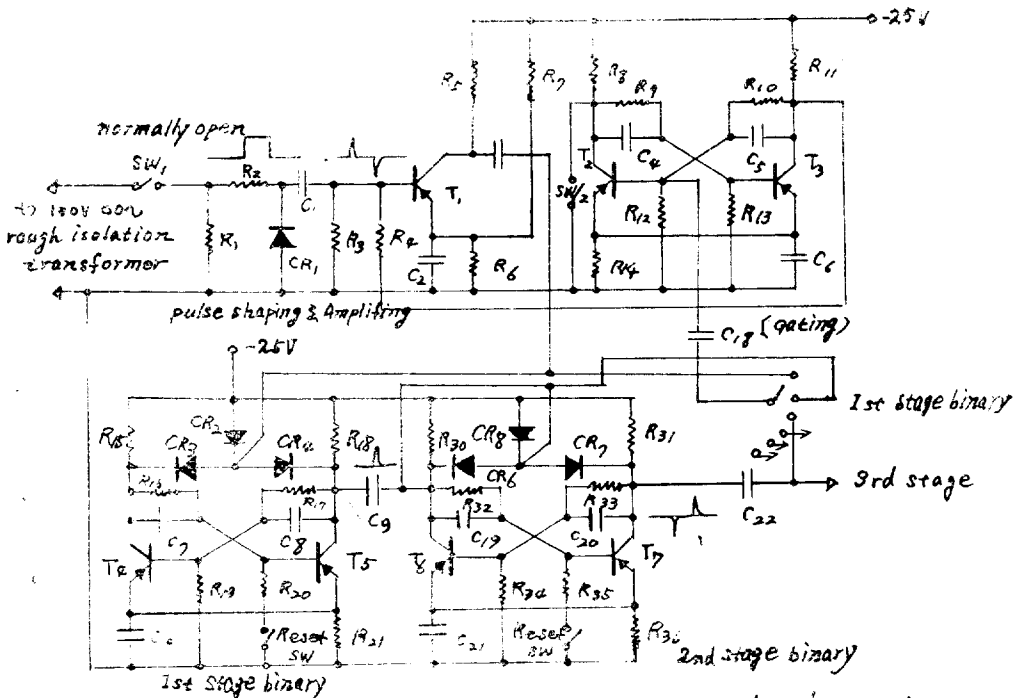 -25V
R5
R7
R8
R9
R10
R11
normally open
SW1
R2
C1
T1
T2
C4
C5
T3
SW2
to 150V
rough isolation
transformer
R1
CR1
R3
R4
C2
R6
R12
R13
R14
C6
pulse shaping & Amplifing
C18
(Gating)
-25V
1st stage binary
R15
CR3
CR2
CR4
R18
R30
CR8
CR6
CR7
R31
3rd stage
R17
C9
R32
R33
C22
C7
C8
C19
C20
T4
T5
T8
T7
R19
R20
R34
R35
Reset
SW
R21
C21
Reset
SW
2nd stage binary
1st Stage binary